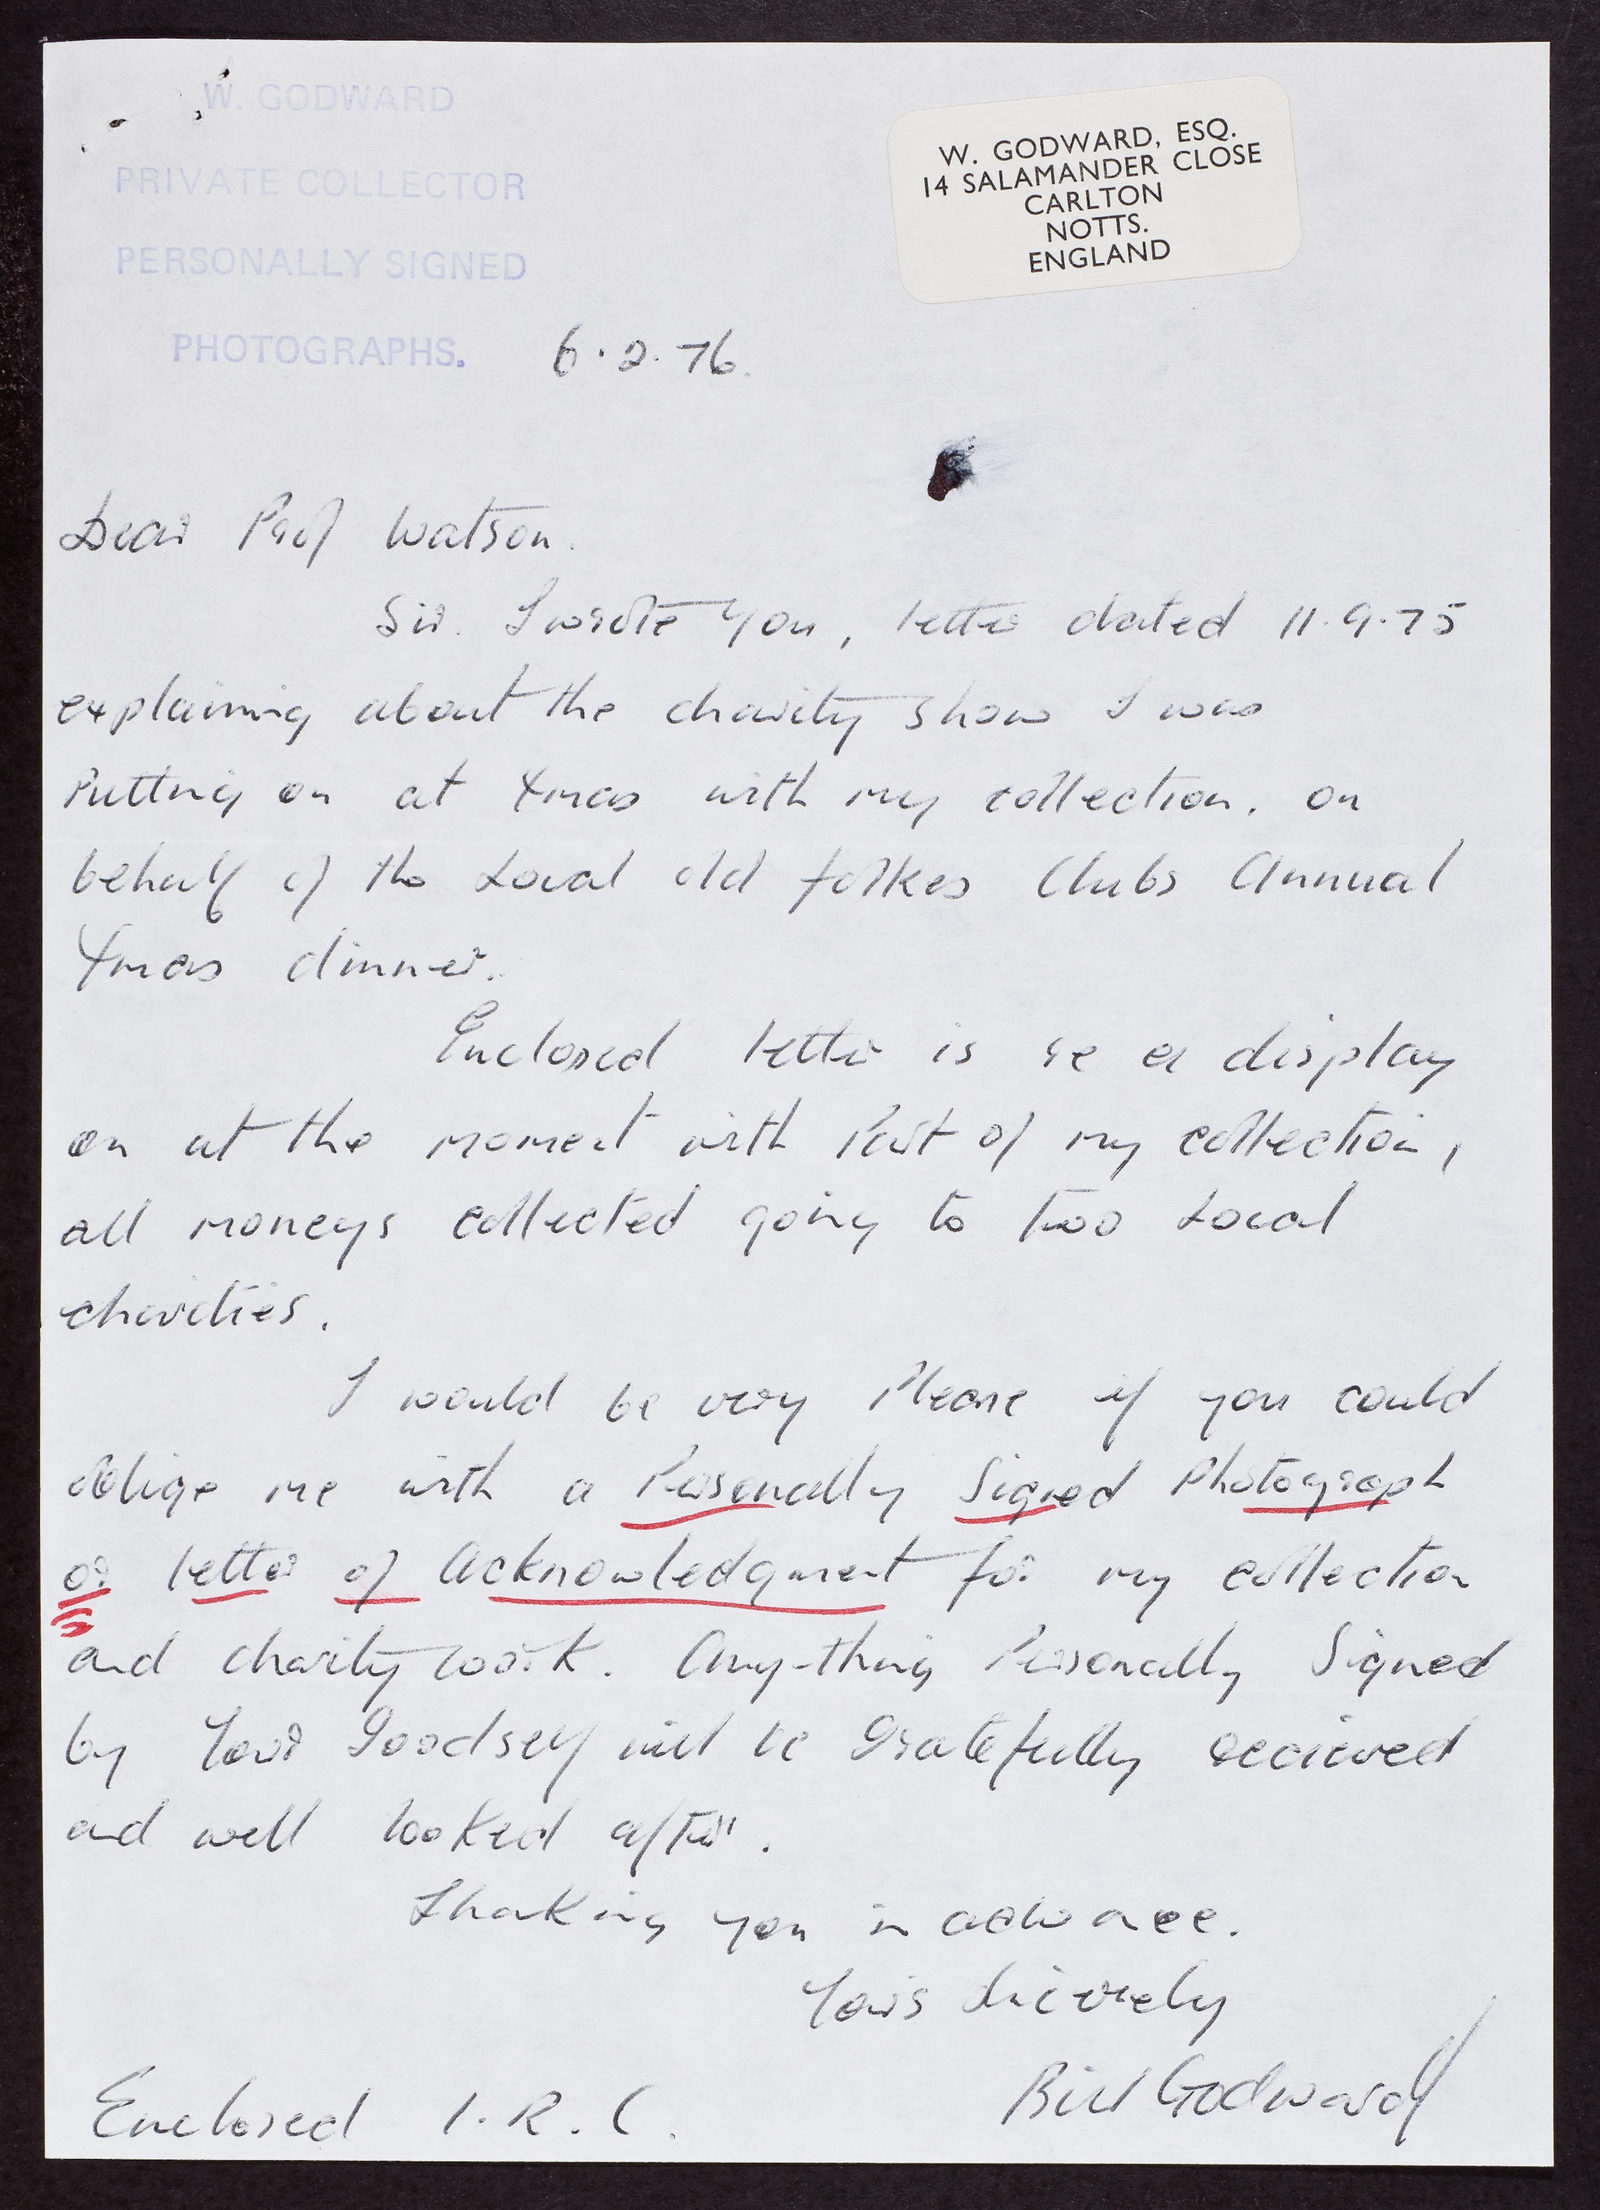 W. GODWARD
PRIVATE COLLECTOR
PERSONALLY SIGNED
PHOTOGRAPHS.
W. GODWARD, ESQ.
14 SALAMANDER CLOSE
CARLTON
NOTTS.
ENGLAND
6.2.76.
Dear Prof Watson.
Sir. I wrote you, letter dated 11.9.75
explaining about the charity show I was
Putting on at Xmas with my collection. on
behalf of the Local old folkes Clubs Annual
Xmas dinner.
Enclosed letter is re a display
on at the moment with Part of my collection,
all moneys collected going to two Local
charities.
I would be very Please if you could
oblige me with a Personally Signed Photograph
or letter of Acknowledgment for my collection
and charity work. Any-thing Personally Signed
by Your Goodself will be Gratefully recieved
and well looked after.
Thanking you in advance.
Yours Sincerely
Bill Godward
Enclosed I.R.C.